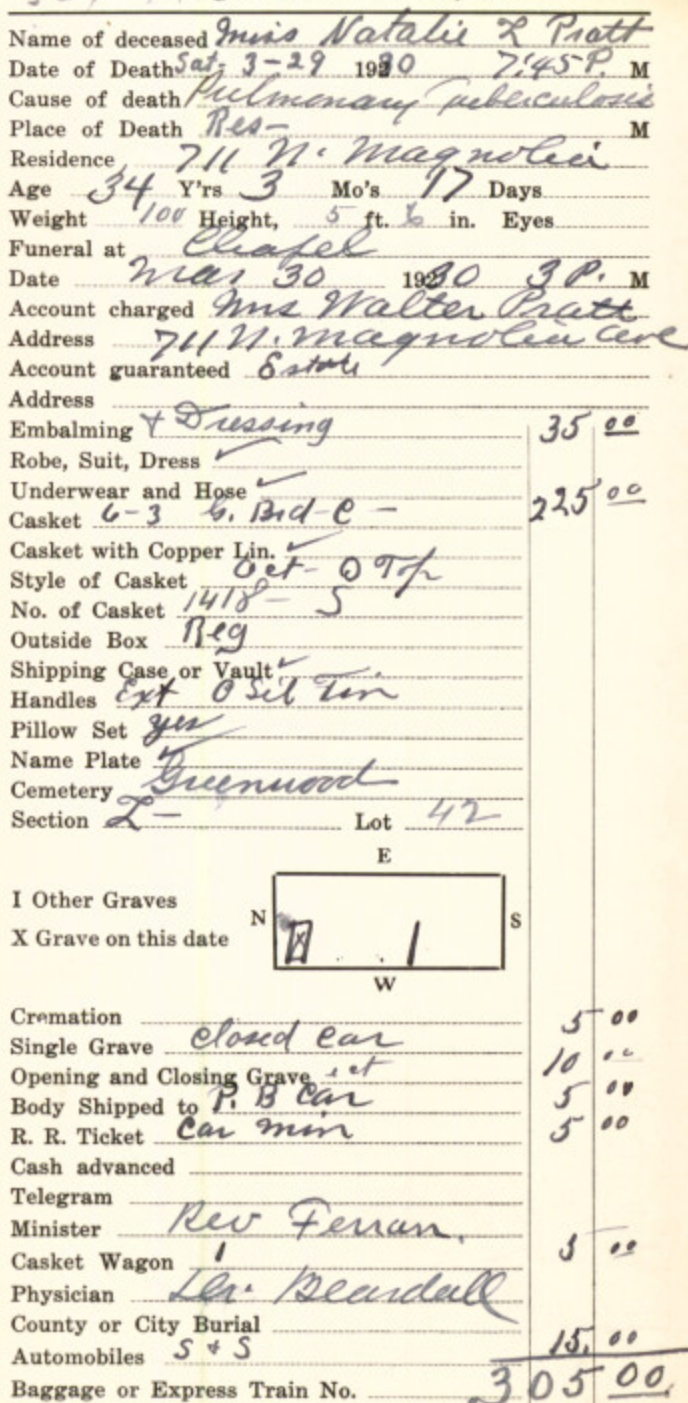 Name of deceased Miss Natalie L Pratt
Date of Death Sat- 3-29 1930 7:45 P. M
Cause of death Pulmonary Tuberculosis
Place of Death Res- M
Residence 711 N. Magnolia
Age 34 Y'rs 3 Mo's 17 Days
Weight 100 Height, 5 ft. 6 in. Eyes
Funeral at Chapel
Date Mar 30 1930 3 P. M
Account charged Mrs Walter Pratt
Address 711 N. Magnolia ave
Account guaranteed Estate
Address
Embalming + Dressing 35 00
Robe, Suit, Dress ✓
Underwear and Hose ✓
Casket 6-3 G. Brd - C - 225 00
Casket with Copper Lin. ✓
Style of Casket Oct- O Top
No. of Casket 1418- S
Outside Box Reg
Shipping Case or Vault ✓
Handles Ext O Sil Tin
Pillow Set yes
Name Plate ✓
Cemetery Greenwood
Section L - Lot 42
E
I Other Graves
N S
X Grave on this date X
W
Cremation 5 00
Single Grave closed car
Opening and Closing Grave 10 00
Body Shipped to P. B Car 5 00
R. R. Ticket Car min 5 00
Cash advanced
Telegram
Minister Rev Ferran.
Casket Wagon 1 5 00
Physician Dr. Beardall
County or City Burial
Automobiles S + S 15. 00
Baggage or Express Train No. 305 00